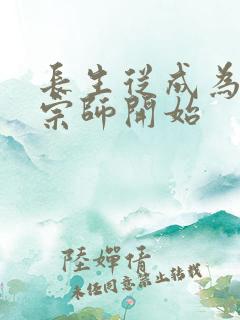 長生從成為
宗師開始
陸嬋倩
未經同意禁止轉載